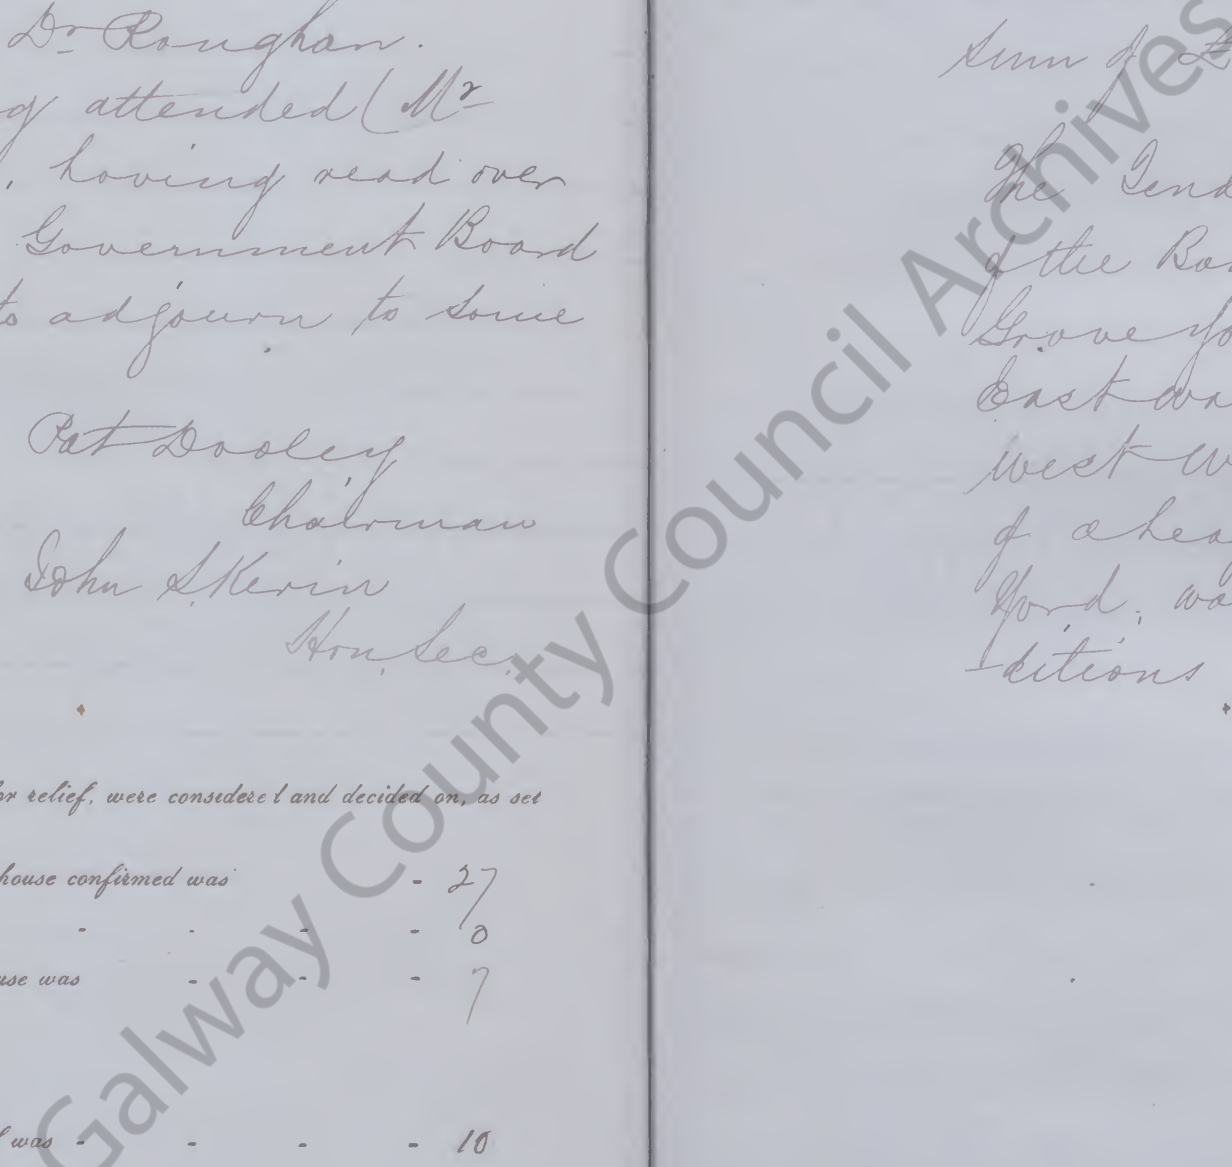 Dr Roughan.
attended (Mr
, having read over
Government Board
to adjourn to some
Pat Dooley
Chairman
John S. Kerin
Hon. Sec.
or relief, were considered and decided on, as set
house confirmed was - 27
- - - - 0
use was - - - 7
was - - - - 10
Sum of £
The Tend
of the Bo
Grave Yo
East wa
west w
of a hea
Yard, wa
-ditions
Galway County Council Archives